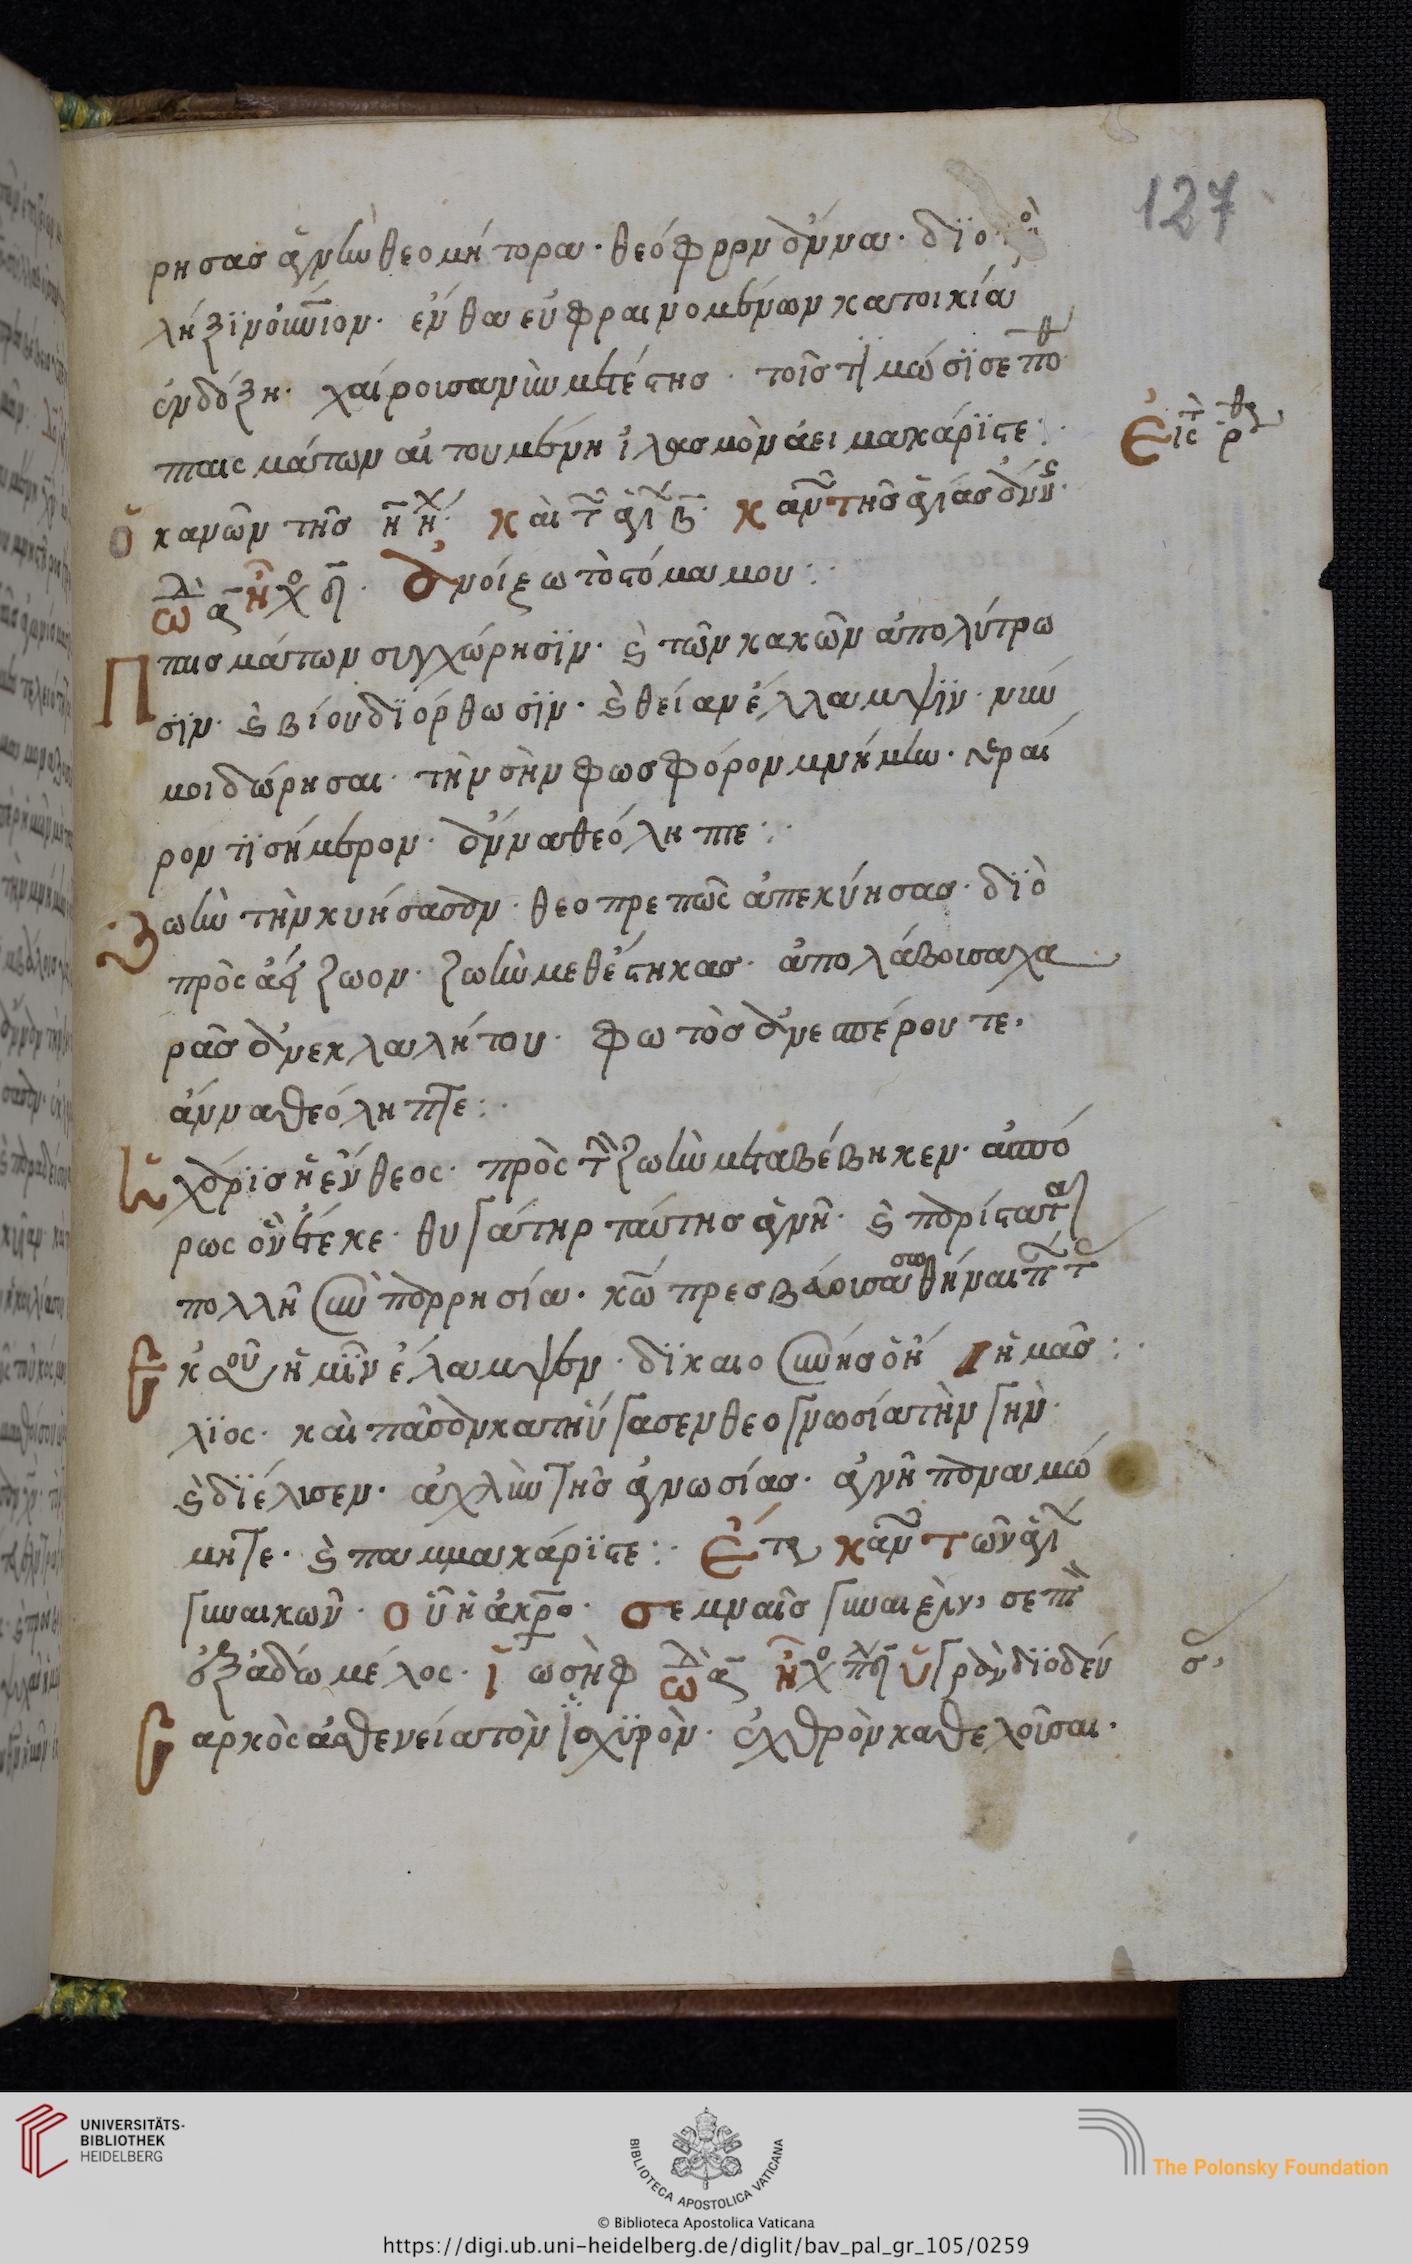 127
ρησας ἁγνὴν θεομήτορα· θεόφρον ἄννα· διὸ
λῆξιν οὐνιον· ἔνθα εὐφραινομένων κατοικία
ἐνδόξη· χαίρουσα νῦν μετέστης· τοῖς τιμῶσί σε πόθ
πταισμάτων αἰτουμένη ἱλασμὸν ἀεὶ μακάριστε:
Εἰς τ ρ
ὁ κανὼν τῆς καὶ τ ἁγι κανὼν τῆς ἁγίας ἄνν
ὠδὴ α ἦχο δ Ἀνοίξω τὸ στόμα μου:
Πταισμάτων συγχώρησιν· καὶ τῶν κακῶν ἀπολύτρω
σιν· καὶ βίου διόρθωσιν· καὶ θείαν ἔλλαμψιν· νῦν
μοι δώρησαι· τὴν σὴν φωσφόρον μνήμην· γεραί
ρον τι σήμερον· ἄννα θεόληπτε:
Ζωὴν τὴν κυήσασαν· θεοπρεπῶς ἀπεκύησας· διὸ
πρὸς ἀείζωον· ζωὴν μεθέστηκας· ἀπολάβουσα χα
ρᾶς ἀνεκλαλήτου· φωτὸς ἀνεσπέρου τε,
ἄννα θεόληπτε:
Ἡ χάρις ἡ ἔνθεος· πρὸς τὴν ζωὴν μεταβέβηκεν· ἀπό
ρως ὃν ἔτεκε· θυγάτηρ ταύτης ἁγνὴ· καὶ παρίσταται
πολλῆ σὺν παρρησία· κἀν πρεσβεύουσα σωθῆναι π τ
Ἐκ σοῦ ἡμῖν ἔλαμψεν· δικαιοσύνης ὁ ἡ ἡμᾶς:
λιος· καὶ πᾶσαν κατηύγασεν θεογνωσία τὴν γῆν·
καὶ διέλυσεν· ἀχλὺν τῆς ἀγνωσίας· ἁγνὴ παναμώ
μητε· καὶ παμμακάριστε: Ἕτε κανὼν τῶν ἁγί
γυναικῶν· οὗ ἡ ἀκρο· σεμναῖς γυναιξὶν, σεπτ
ἐξάδω μέλος· ἰωσὴφ ὠδὴ α ἦχο πλ δ ὑγρὰν διοδεύ
σ,
Σαρκὸς ἀσθενεία τὸν ἰσχυρὸν· ἐχθρὸν καθελοῦσαι·
UNIVERSITÄTS-
BIBLIOTHEK
HEIDELBERG
BIBLIOTECA APOSTOLICA VATICANA
The Polonsky Foundation
© Biblioteca Apostolica Vaticana
https://digi.ub.uni-heidelberg.de/diglit/bav_pal_gr_105/0259